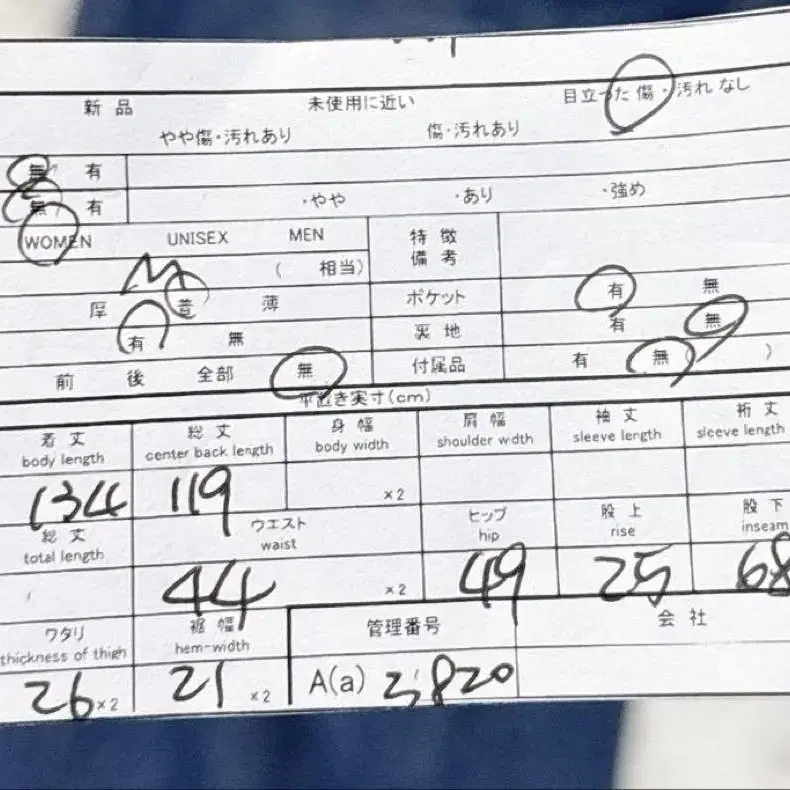 新品 未使用に近い 目立った傷・汚れなし
やや傷・汚れあり 傷・汚れあり
無 有
無 有 ・やや ・あり ・強め
WOMEN UNISEX MEN 特徴
備考
M ( 相当)
厚 普 薄 ポケット 有 無
有 無 裏地 有 無
前 後 全部 無 付属品 有 無 ( )
平置き実寸(cm)
着丈 総丈 身幅 肩幅 袖丈 裄丈
body length center back length body width shoulder width sleeve length sleeve length
134 119 ×2
総丈 ウエスト ヒップ 股上 股下
total length waist hip rise inseam
44 ×2 49 25 68
ワタリ 裾幅 管理番号 会社
thickness of thigh hem-width
26 ×2 21 ×2 A(a) 3,820